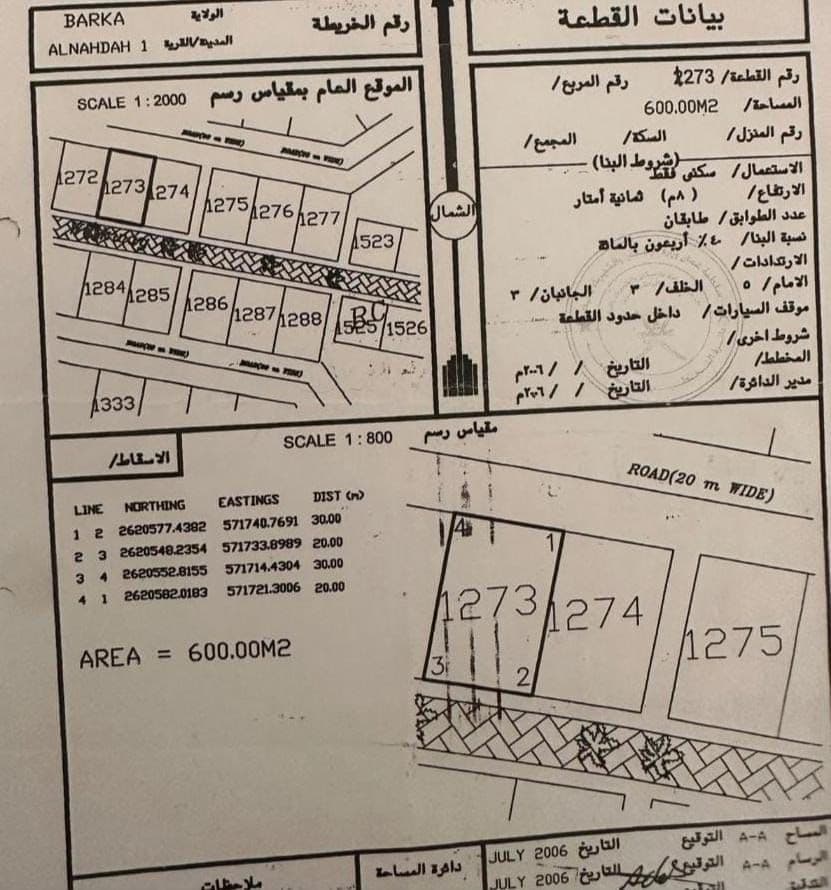 بيانات القطعة
BARKA الولاية
ALNAHDAH 1 المدينة/القرية
رقم الخريطة
رقم القطعة/ 1273 رقم المربع/
المساحة/ 600.00M2
رقم المنزل/ السكة/ المجمع/
(شروط البنا)
الاستعمال/ سكنى فقط
الارتفاع/ (٨م) ثمانية أمتار
عدد الطوابق/ طابقان
نسبة البنا/ ٤٠٪ أربعون بالماه
الارتدادات/
الامام/ ٥ الخلف/ ٣ الجانبان/ ٣
موقف السيارات/ داخل حدود القطعة
شروط اخرى/
المخطط/ التاريخ / / ٢٠٠٦م
مدير الدائرة/ التاريخ / / ٢٠٠٦م
الموقع العام بمقياس رسم SCALE 1:2000
1272 1273 1274 1275 1276 1277 1523
1284 1285 1286 1287 1288 1525 1526
RC
1333
الشمال
الاسقاط/
SCALE 1:800 مقياس رسم
LINE NORTHING EASTINGS DIST (m)
1 2 2620577.4382 571740.7691 30.00
2 3 2620548.2354 571733.8989 20.00
3 4 2620552.8155 571714.4304 30.00
4 1 2620582.0183 571721.3006 20.00
AREA = 600.00M2
ROAD(20 m WIDE)
4 1
1273 1274 1275
3 2
المساح A-A التوقيع التاريخ JULY 2006
الرسام A-A التوقيع التاريخ JULY 2006
دائرة المساحة
ملاحظات